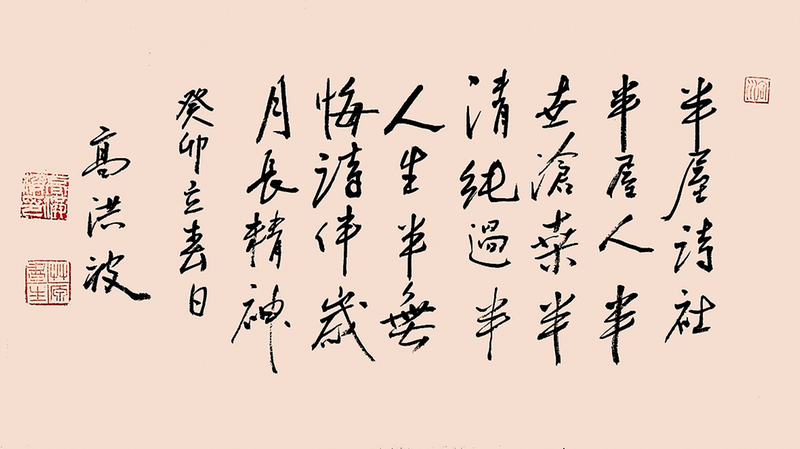 半屋詩社
半屋人半
世滄桑半
清純過半
人生半無
悔詩伴歲
月長精神
癸卯立春日
高洪波